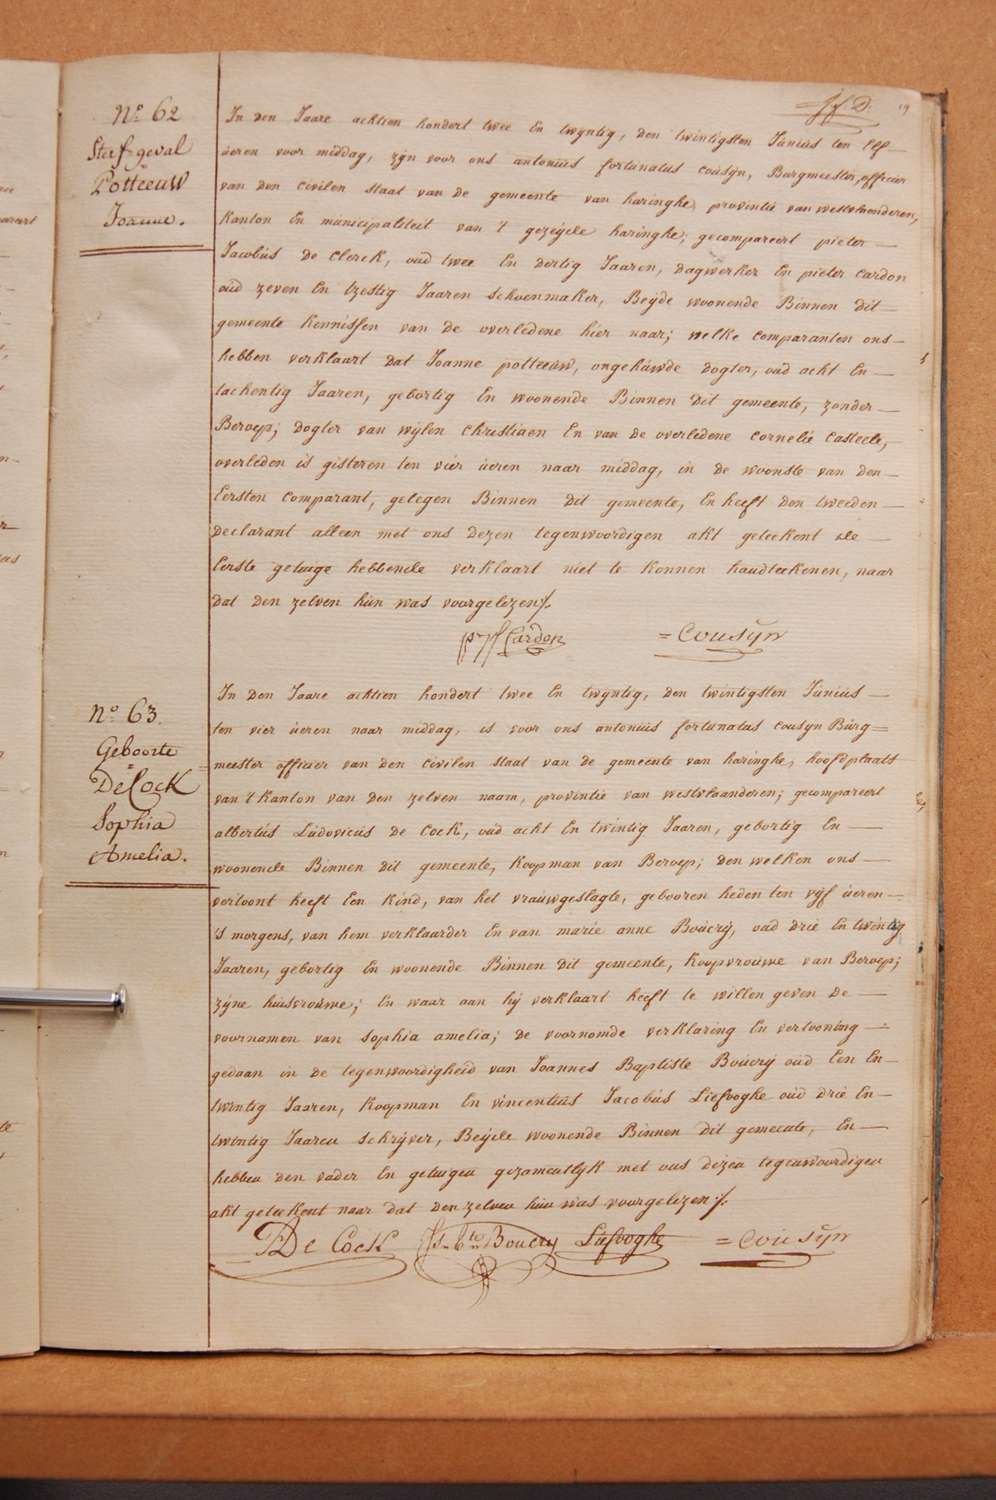 19
N.º 62
Sterf-geval
Potteeuw
Joanne.
In den Jaare achtien hondert twee En twijntig, den twintigsten Junius ten Elf
ueren voor middag, zijn voor ons antonius fortunatus cousijn, Burgmeester, officier
van den civilen staat van de gemeente van haringhe, provintie van westvlaenderen,
kanton En municipaliteit van 't gezeijde haringhe; gecompareert pieter
Jacobus De Clerck, oud twee En dertig Jaaren, dagwerker En pieter cardon
oud zeven En tzestig Jaaren schoenmaker, Beijde woonende Binnen dit
gemeente kennissen van de overledene hier naar; welke comparanten ons
hebben verklaart dat Joanne potteeuw, ongehuwde dogter, oud acht En
tachentig Jaaren, gebortig En woonende Binnen Dit gemeente, zonder
Beroep; dogter van wijlen christiaen En van de overledene cornelie casteele,
overleden is gisteren ten vier ueren naar middag, in de woonste van den
Eersten comparant, gelegen Binnen dit gemeente, En heeft den tweeden
declarant alleen met ons dezen tegenwoordigen akt geteekent de
Eerste getuige hebbende verklaart niet te konnen handteekenen, naar
dat den zelven hun was voorgelezen/.
Cardon = Cousijn
N.º 63.
Geboorte
De Cock
Sophia
Amelia.
In Den Jaare achtien hondert twee En twijntig, den twintigsten Junius
ten vier ueren naar middag, is voor ons antonius fortunatus cousijn Burg=
meester officier van den civilen staat van de gemeente van haringhe, hoofdplaats
van 't kanton van den zelven naam, provintie van westvlaanderen; gecompareert
albertus Ludovicus de Cock, oud acht En twintig Jaaren, gebortig En
woonende Binnen dit gemeente, koopman van Beroep; den welken ons
vertoont heeft Een kind, van het vrauwgeslagte, gebooren heden ten vijf ueren
's morgens, van hem verklaarder En van marie anne Bouerij, oud drie En twintig
Jaaren, gebortig En woonende Binnen dit gemeente, koopvrouwe van Beroep;
zijne huisvrouwe; En waar aan hij verklaart heeft te willen geven de
voornamen van sophia amelia; de voornomde verklaring En vertooning
gedaan in de tegenwoordigheid van Joannes Baptiste Bouerij oud Een En
twintig Jaaren, koopman En vincentius Jacobus Liefooghe oud drie En
twintig Jaaren schrijver, Beijde woonende Binnen dit gemeente, En
hebben den vader En getuigen gezamentlijk met ons dezen tegenwoordigen
akt geteekent naar dat den zelven hun was voorgelezen/.
De Cock Js. Bte. Bouerij Liefooghe = Cousijn